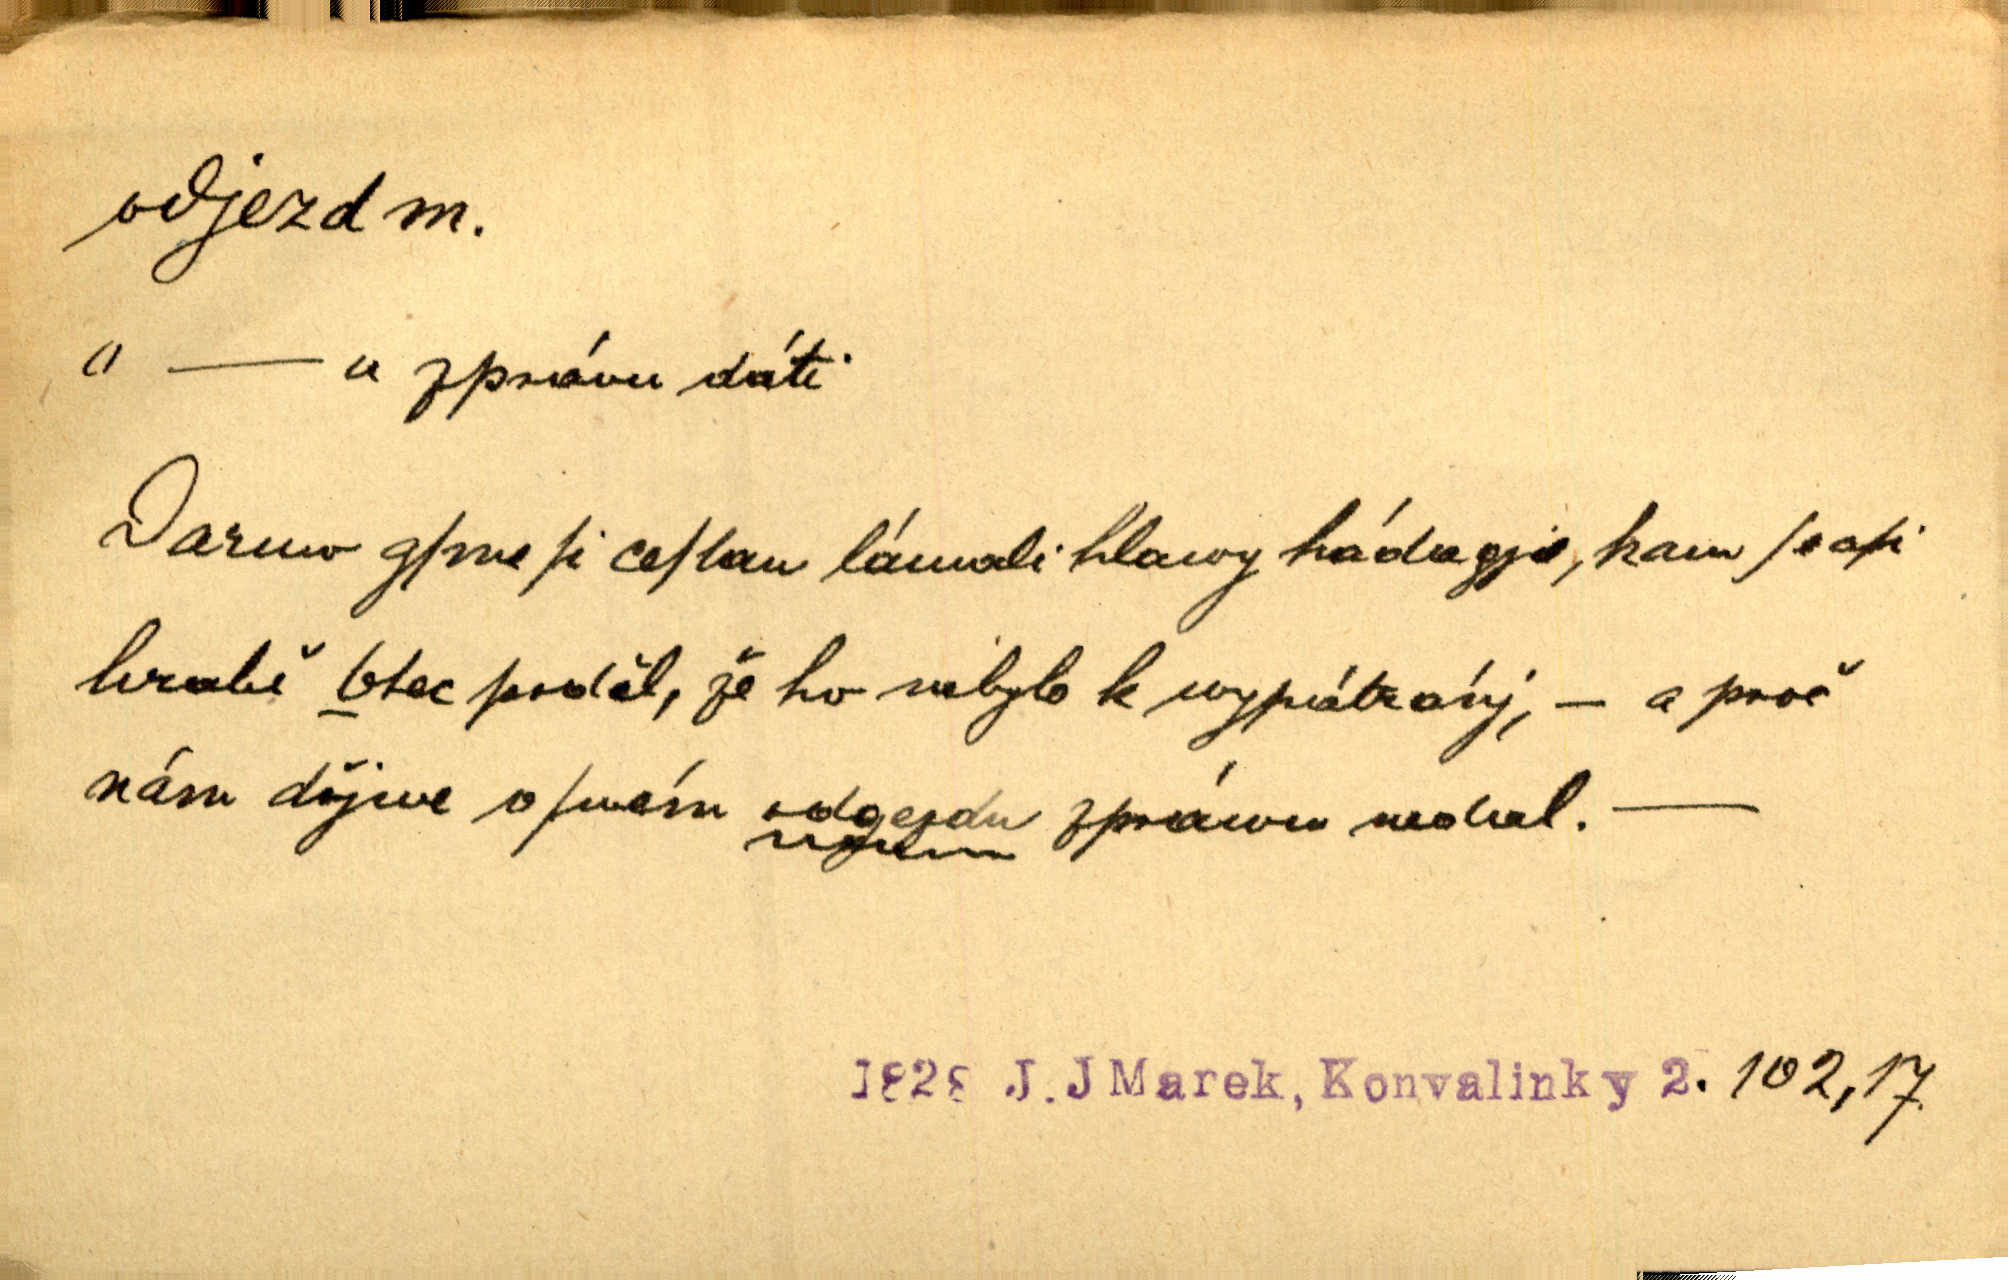 odjezd m.
" — u zprávu dáti
Darmo gſme ſi ceſtau lámali hlawy hádagjc, kam ſe aſi
hrabě Otec poděl, že ho nebylo k wypátránj, — a proč
nám dřjwe o ſwém odgezdu zpráwu nedal. —
1828 J. J Marek, Konvalinky 2. 102, 17.